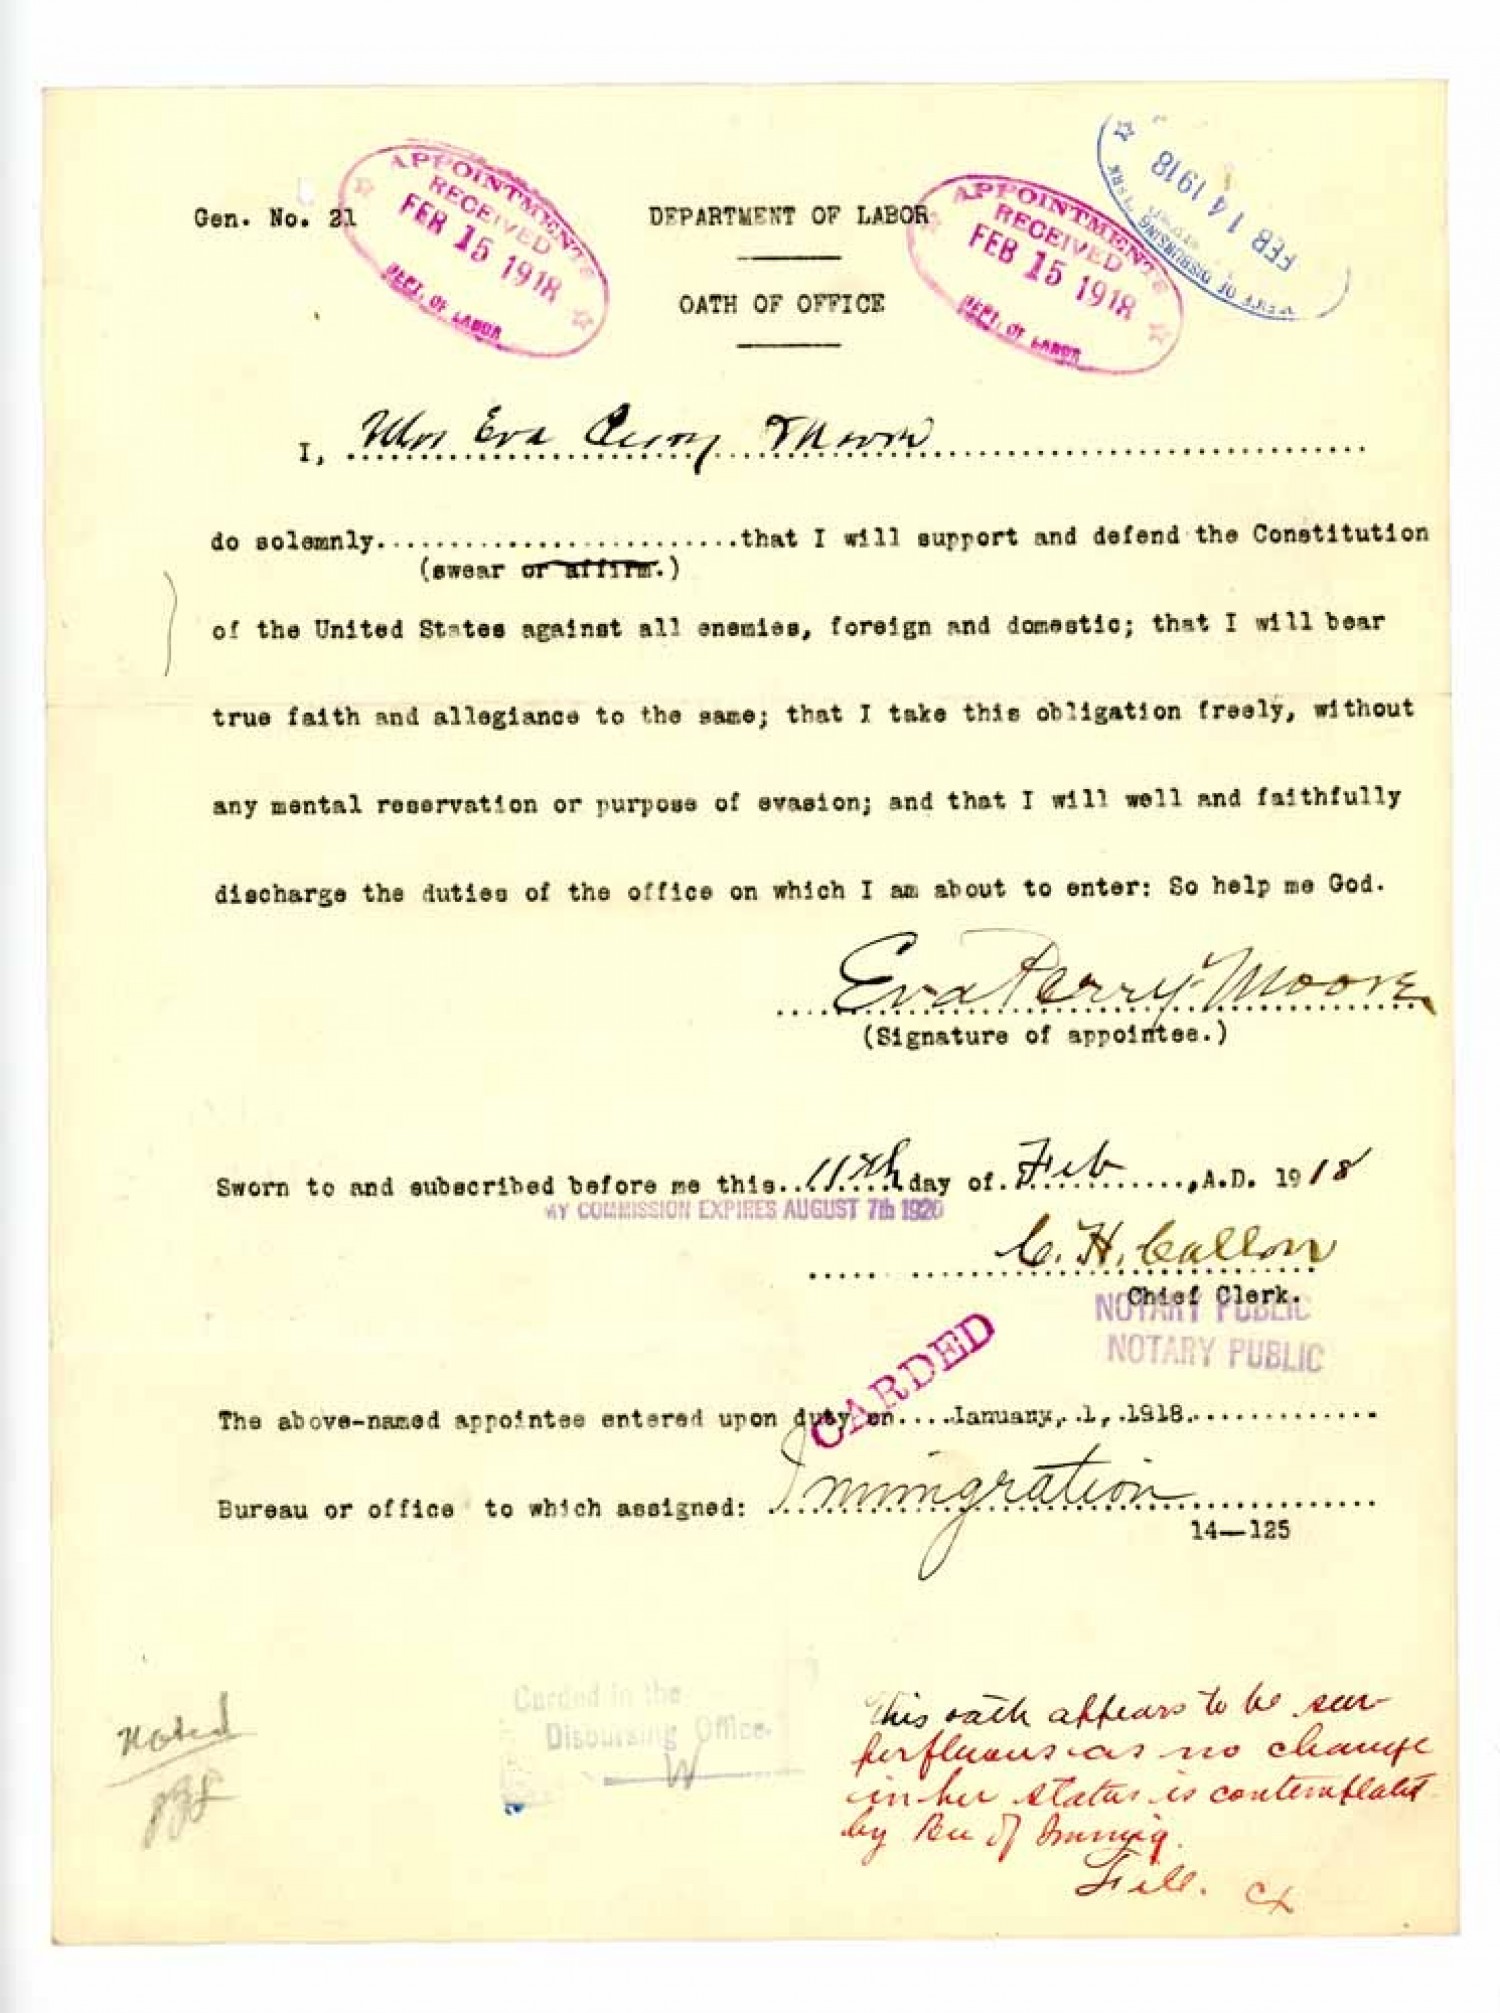 APPOINTMENTS
RECEIVED
FEB 15 1918
DEPT. OF LABOR
APPOINTMENTS
RECEIVED
FEB 15 1918
DEPT. OF LABOR
FEB 14 1918
OF DISBURSING
Gen. No. 21
DEPARTMENT OF LABOR
OATH OF OFFICE
I, Mrs Eva Perry Moore
do solemnly........................that I will support and defend the Constitution
(swear or affirm.)
of the United States against all enemies, foreign and domestic; that I will bear
true faith and allegiance to the same; that I take this obligation freely, without
any mental reservation or purpose of evasion; and that I will well and faithfully
discharge the duties of the office on which I am about to enter: So help me God.
Eva Perry Moore
(Signature of appointee.)
Sworn to and subscribed before me this..11th.day of.Feb.....,A.D. 1918
MY COMMISSION EXPIRES AUGUST 7th 1920
C. H. Callon
Chief Clerk.
NOTARY PUBLIC
NOTARY PUBLIC
CARDED
The above-named appointee entered upon duty on....January, 1, 1918.............
Bureau or office to which assigned: Immigration
14—125
Noted
Carded in the
Disbursing Office.
W
This oath appears to be sur-
perfluous as no change
in her status is contemplated
by Bu of Immig.
File.